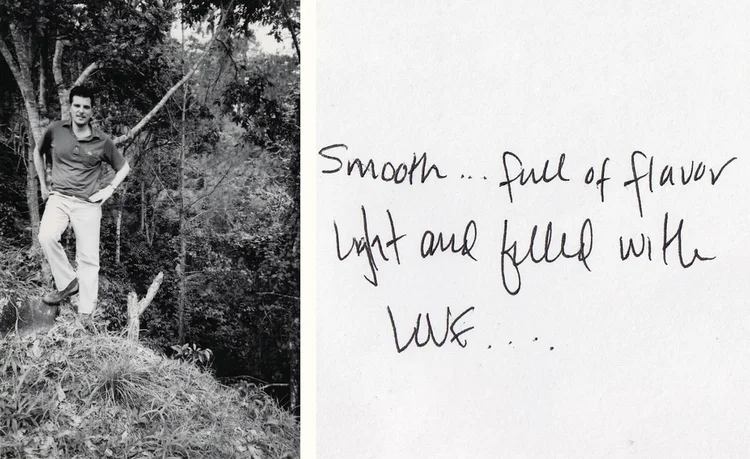 Smooth... full of flavor
Light and filled with
LOVE.....